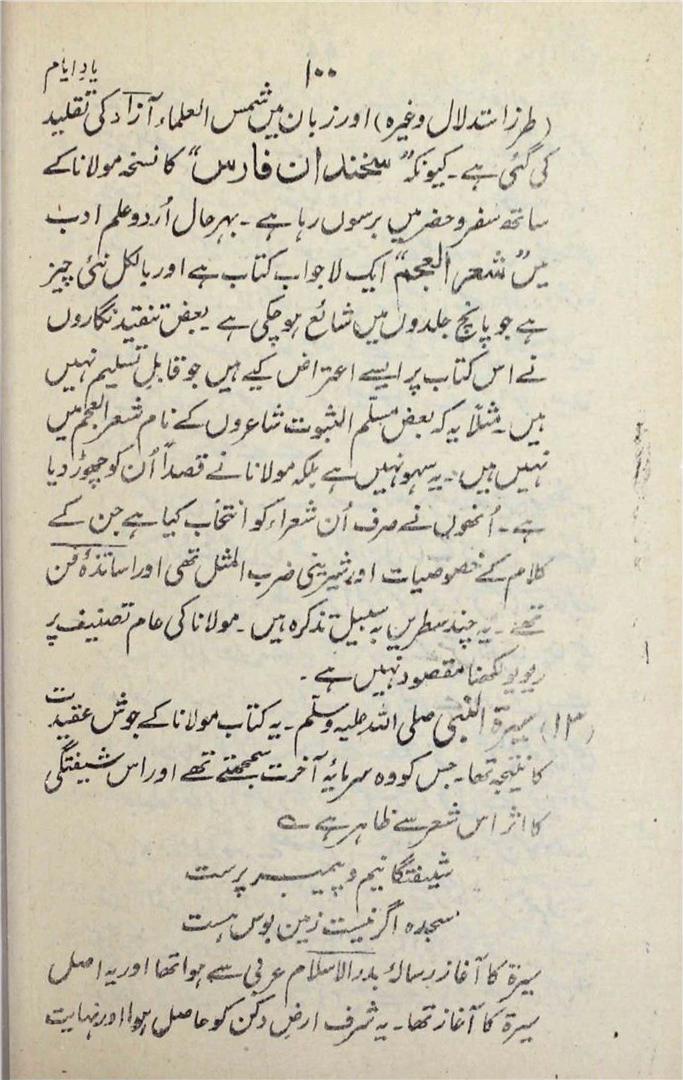 ۱۰۰
یادِ ایام
(طرز استدلال وغیرہ) اور زبان میں شمس العلماء آزاد کی تقلید
کی گئی ہے۔ کیونکہ "سخندان فارس" کا نسخہ مولانا کے
ساتھ سفر و حضر میں برسوں رہا ہے۔ بہرحال اُردو علم ادب
میں "شعر العجم" ایک لاجواب کتاب ہے اور بالکل نئی چیز
ہے جو پانچ جلدوں میں شائع ہوچکی ہے بعض تنقید نگاروں
نے اس کتاب پر ایسے اعتراض کیے ہیں جو قابلِ تسلیم نہیں
ہیں۔ مثلاً یہ کہ بعض مسلّم الثبوت شاعروں کے نام شعر العجم میں
نہیں ہیں۔ یہ سہو نہیں ہے بلکہ مولانا نے قصداً اُن کو چھوڑ دیا
ہے۔ اُنھوں نے صرف اُن شعراء کو انتخاب کیا ہے جن کے
کلام کے خصوصیات اور شیرینی ضرب المثل تھی اور اساتذۂ فن
تھے۔ یہ چند سطریں بہ سبیل تذکرہ ہیں۔ مولانا کی عام تصنیف پر
ریویو لکھنا مقصود نہیں ہے۔
(۱۳) سیرۃ النبی صلی اللہ علیہ وسلم۔ یہ کتاب مولانا کے جوش عقیدت
کا نتیجہ تھا۔ جس کو وہ سرمایۂ آخرت سمجھتے تھے اور اس شیفتگی
کا اثر اس شعر سے ظاہر ہے ؎
شیفتگانیم و پیمبر پرست
سجدہ اگر نیست زمین بوس ہست
سیرۃ کا آغاز رسالۂ بدر الاسلام عربی سے ہوا تھا اور یہ اصل
سیرۃ کا آغاز تھا۔ یہ شرف ارض دکن کو حاصل ہوا اور نہایت